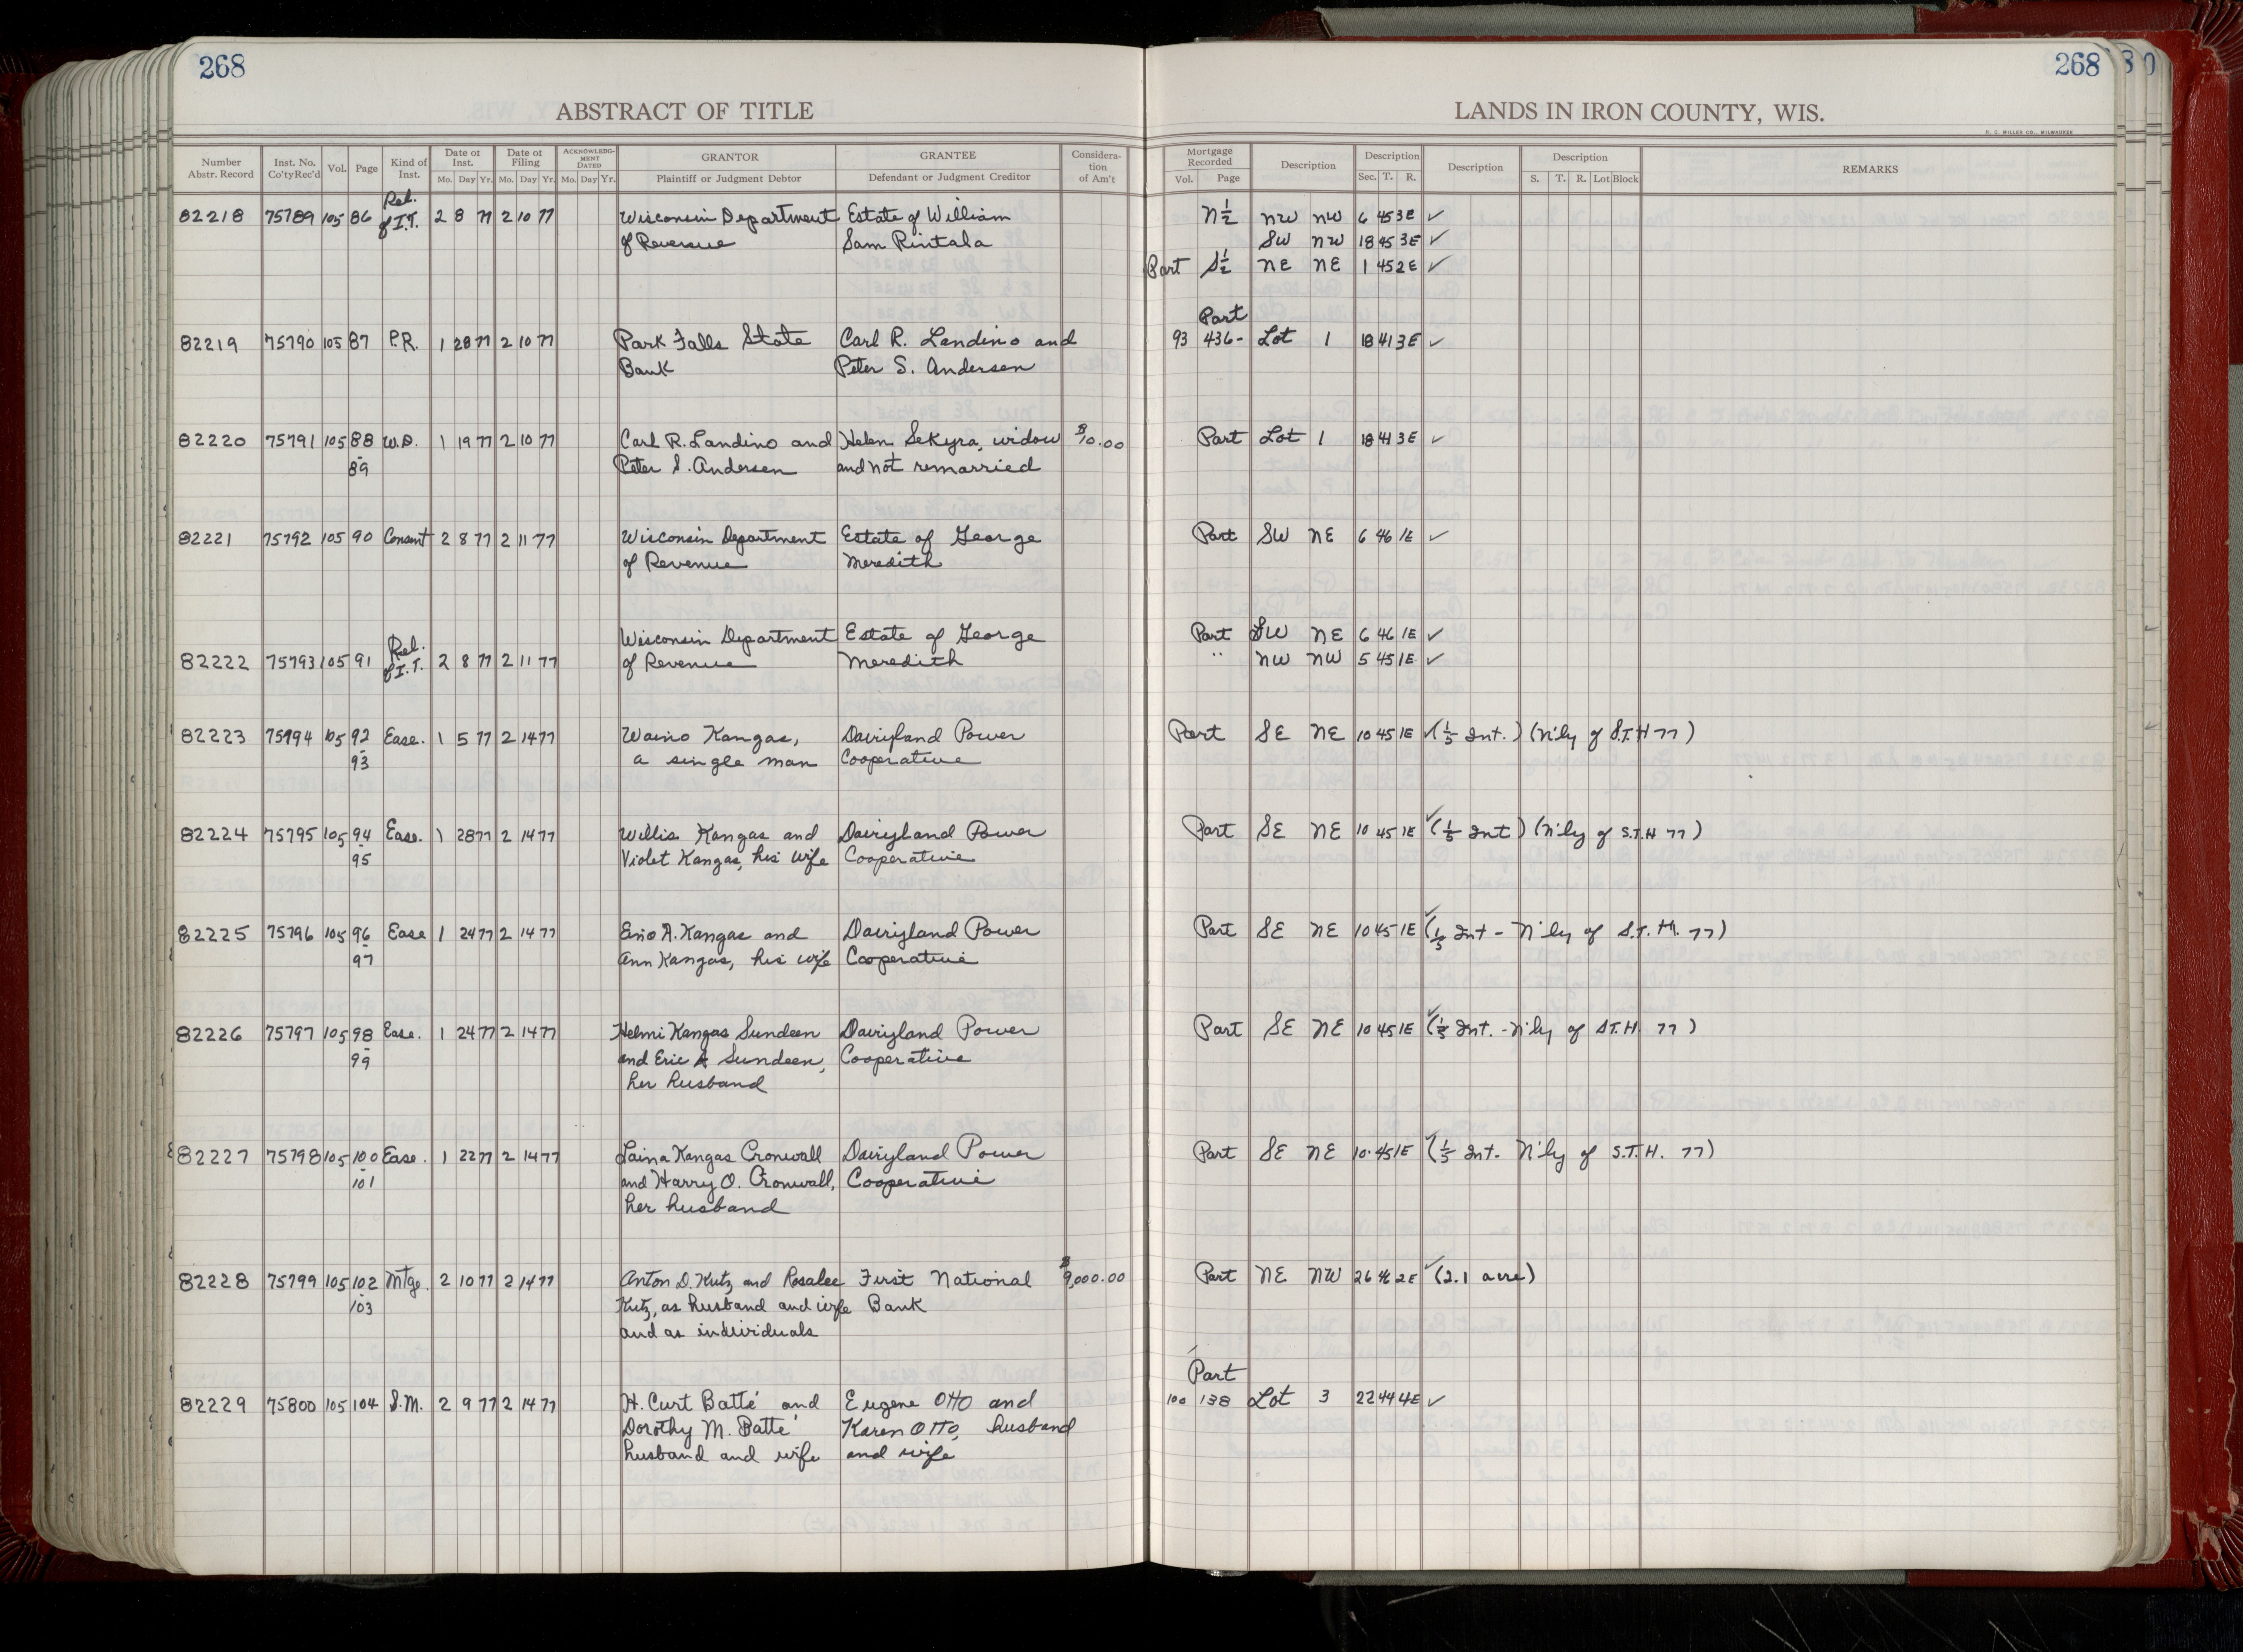 268
268
ABSTRACT OF TITLE
LANDS IN IRON COUNTY, WIS.
H. C. MILLER CO., MILWAUKEE
Number Abstr. Record Inst. No. Co'ty Rec'd Vol. Page Kind of Inst. Date of Inst. Mo. Day Yr. Date of Filing Mo. Day Yr. ACKNOWLEDGMENT DATED Mo. Day Yr. GRANTOR Plaintiff or Judgment Debtor GRANTEE Defendant or Judgment Creditor Consideration of Am't
Mortgage Recorded Vol. Page Description Description Sec. T. R. Description Description S. T. R. Lot Block REMARKS
Rel.
82218 75789 105 86 of I.T. 2 8 77 2 10 77 Wisconsin Department Estate of William N½ NW NW 6 45 3E ✓
of Revenue Sam Rintala SW NW 18 45 3E ✓
Part S½ NE NE 1 45 2E ✓
Part
82219 75790 105 87 P.R. 1 28 77 2 10 77 Park Falls State Carl R. Landino and 93 436- Lot 1 18 41 3E ✓
Bank Peter S. Andersen
82220 75791 105 88 W.D. 1 19 77 2 10 77 Carl R. Landino and Helen Sekyra, widow $10.00 Part Lot 1 18 41 3E ✓
- 89 Peter S. Andersen and not remarried
82221 75792 105 90 Consent 2 8 77 2 11 77 Wisconsin Department Estate of George Part SW NE 6 46 1E ✓
of Revenue Meredith
Rel. Wisconsin Department Estate of George Part SW NE 6 46 1E ✓
82222 75793 105 91 of I.T. 2 8 77 2 11 77 of Revenue Meredith " NW NW 5 45 1E ✓
82223 75794 105 92 Ease. 1 5 77 2 14 77 Waino Kangas, Dairyland Power Part SE NE 10 45 1E ✓ (⅕ Int.) (N'ly of S.T.H 77)
- 93 a single man Cooperative
82224 75795 105 94 Ease. 1 28 77 2 14 77 Willis Kangas and Dairyland Power Part SE NE 10 45 1E ✓ (⅕ Int) (N'ly of S.T.H 77)
- 95 Violet Kangas, his wife Cooperative
82225 75796 105 96 Ease 1 24 77 2 14 77 Eino A. Kangas and Dairyland Power Part SE NE 10 45 1E ✓ (⅕ Int - N'ly of S.T.H. 77)
- 97 Ann Kangas, his wife Cooperative
82226 75797 105 98 Ease. 1 24 77 2 14 77 Helmi Kangas Sundeen Dairyland Power Part SE NE 10 45 1E ✓ (⅕ Int. - N'ly of S.T.H. 77)
- 99 and Eric A Sundeen, Cooperative
her husband
82227 75798 105 100 Ease. 1 22 77 2 14 77 Laina Kangas Cronwall Dairyland Power Part SE NE 10 45 1E ✓ (⅕ Int. N'ly of S.T.H. 77)
- 101 and Harry O. Cronwall, Cooperative
her husband
82228 75799 105 102 Mtge. 2 10 77 2 14 77 Anton D. Kutz and Rosalee First National $9,000.00 Part NE NW 26 46 2E ✓ (2.1 acre)
- 103 Kutz, as husband and wife Bank
and as individuals
Part
82229 75800 105 104 S.M. 2 9 77 2 14 77 H. Curt Batté and Eugene Otto and 100 138 Lot 3 22 44 4E ✓
Dorothy M. Batté Karen Otto, husband
husband and wife and wife